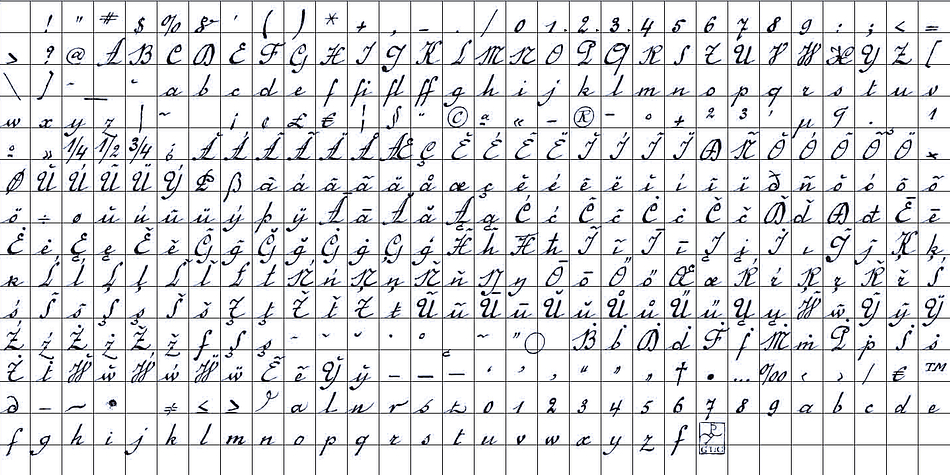 ! " # $ % & ' ( ) * + , - . / 0 1 2 3 4 5 6 7 8 9 : ; < =
> ? @ A B C D E F G H I J K L M N O P Q R S T U V W X Y Z [
\ ] ^ _ ` a b c d e f fi fl ff g h i j k l m n o p q r s t u v
w x y z | ~ ¡ ¢ £ € ¦ § ¨ © ª « - ® ¯ ° ± ² ³ ´ µ ¶ · ¹
º » 1/4 1/2 3/4 ¿ À Á Â Ã Ä Å Æ Ç È É Ê Ë Ì Í Î Ï Ð Ñ Ò Ó Ô Õ Ö ×
Ø Ù Ú Û Ü Ý Þ ß à á â ã ä å æ ç è é ê ë ì í î ï ð ñ ò ó ô õ
ö ÷ ø ù ú û ü ý þ ÿ Ā ā Ă ă Ą ą Ć ć Ĉ ĉ Ċ ċ Č č Ď ď Đ đ Ē ē
Ė ė Ę ę Ě ě Ĝ ĝ Ğ ğ Ġ ġ Ģ ģ Ĥ ĥ Ħ ħ Ĩ ĩ Ī ī Į į İ ı Ĵ ĵ Ķ ķ
ĸ Ĺ ĺ Ļ ļ Ľ ľ Ł ł Ń ń Ņ ņ Ň ň Ŋ ŋ Ō ō Ő ő Œ œ Ŕ ŕ Ŗ ŗ Ř ř Ś
ś Ŝ ŝ Ş ş Š š Ţ ţ Ť ť Ŧ ŧ Ũ ũ Ū ū Ŭ ŭ Ů ů Ű ű Ų ų Ŵ ŵ Ŷ ŷ Ÿ
Ź ź Ż ż Ž ž ſ Ș ș ˆ ˇ ˘ ˙ ˚ ˛ ˜ ˝ Ḃ ḃ Ḋ ḋ Ḟ ḟ Ṁ ṁ Ṗ ṗ Ṡ ṡ
Ṫ ṫ Ẁ ẁ Ẃ ẃ Ẅ ẅ Ẽ ẽ Ỳ ỳ – — ― ‘ ’ ‚ “ ” „ † • … ‰ ‹ › ⁄ € ™
∂ − ∼ ≠ < > a l n r s t 0 1 2 3 4 5 6 7 8 9 a b c d e
f g h i j k l m n o p q r s t u v w x y z f GLG